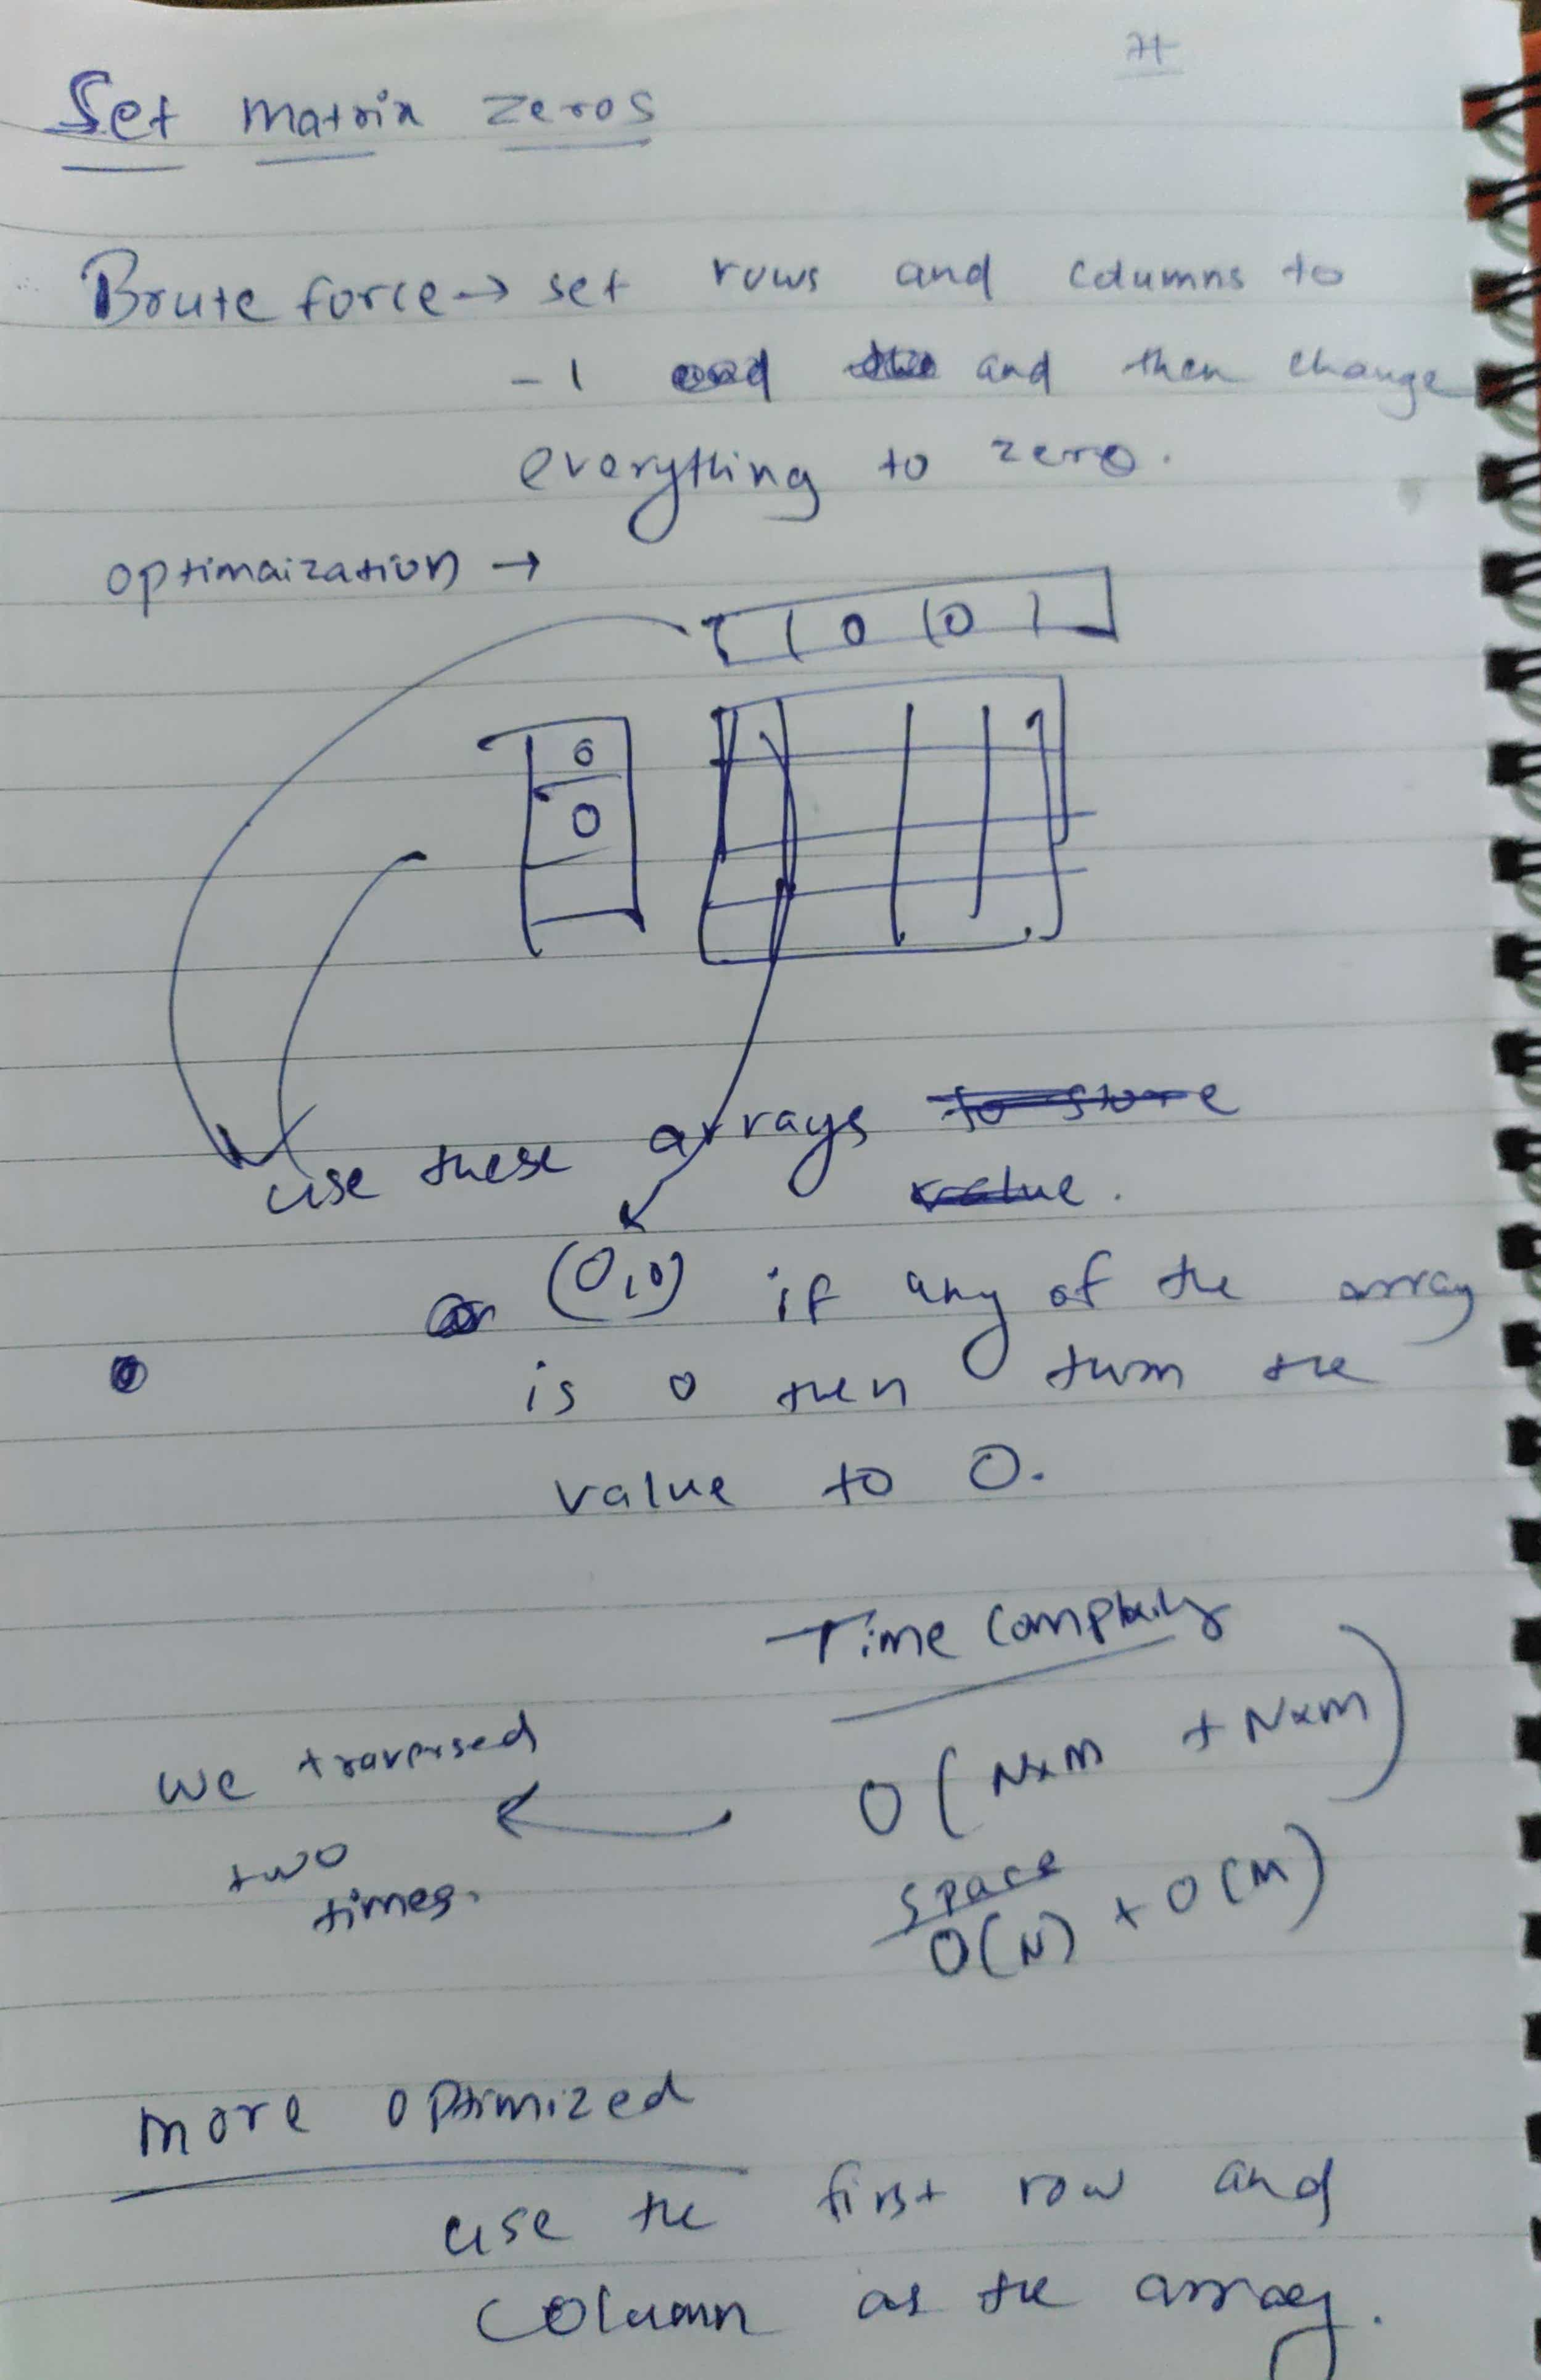 Set matrix zeros
Brute force → set rows and columns to
-1 and then change
everything to zero.
optimaization →
1 0 0 1
0
0
use these arrays to store
value.
(0,0) if any of the array
is 0 then turn the
value to 0.
Time
O(N×M + N×M)
we traversed
two
times.
space
O(N) + O(M)
more optimized
use the first row and
column as the array.